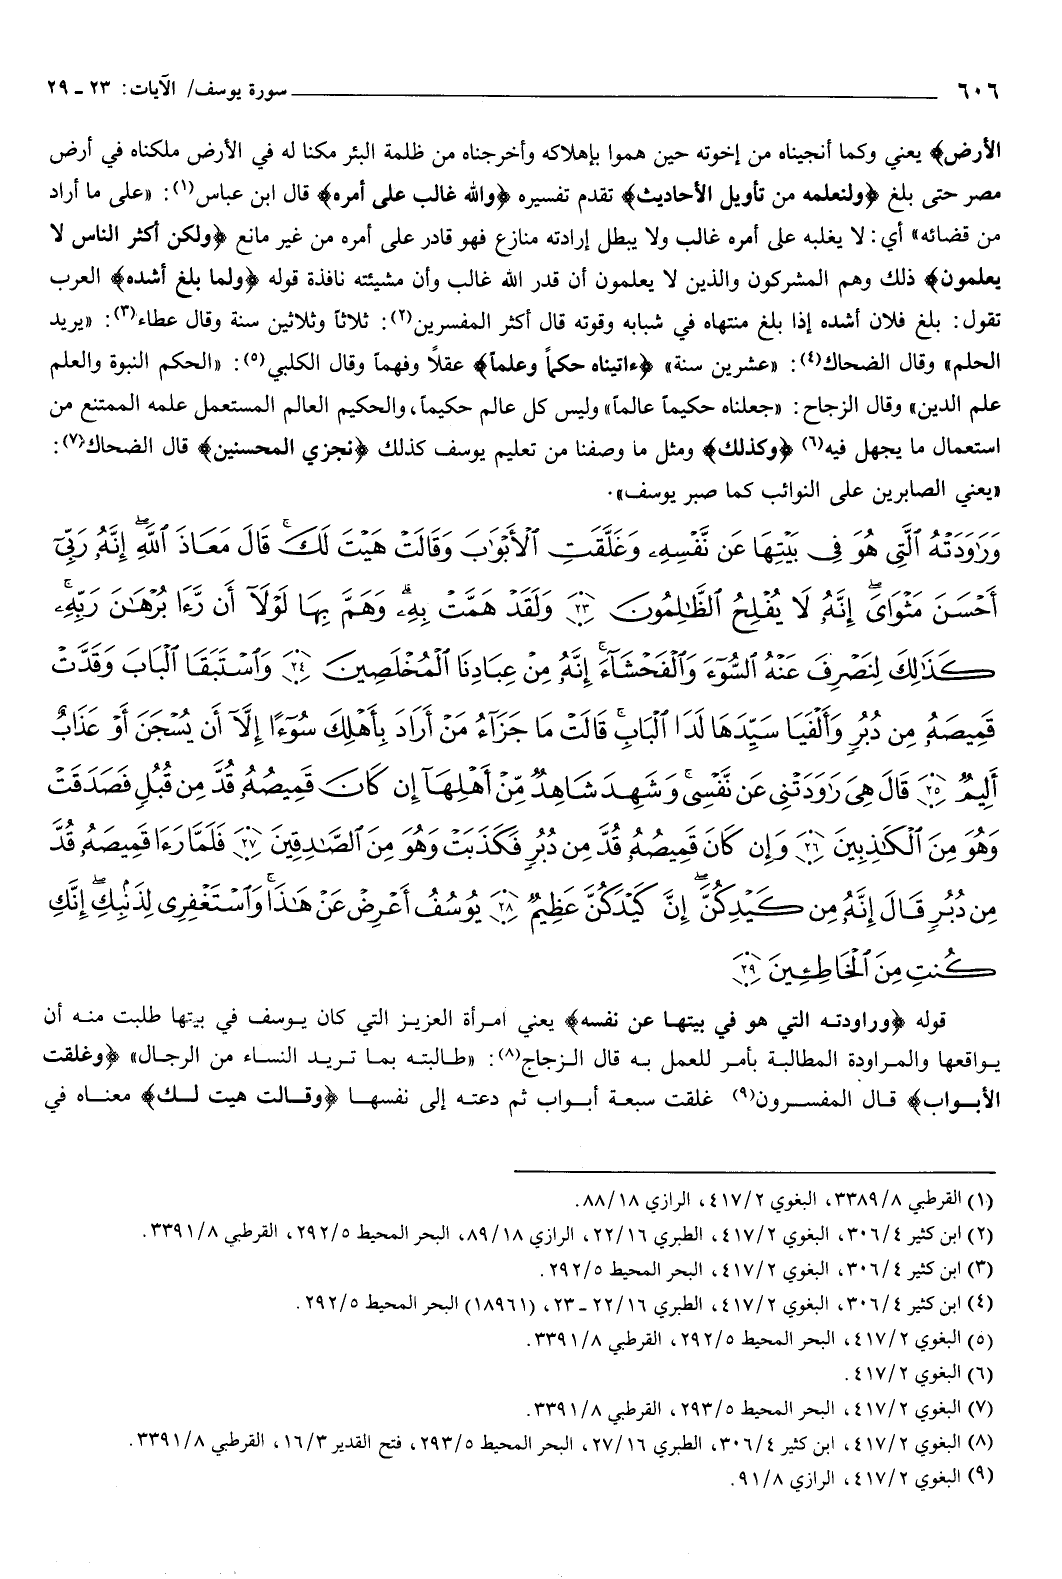 ٦٠٦ سورة يوسف/ الآيات: ٢٣ ـ ٢٩
الأرض﴾ يعني وكما أنجيناه من إخوته حين هموا بإهلاكه وأخرجناه من ظلمة البئر مكنا له في الأرض ملكناه في أرض
مصر حتى بلغ ﴿ولنعلمه من تأويل الأحاديث﴾ تقدم تفسيره ﴿والله غالب على أمره﴾ قال ابن عباس(١): «على ما أراد
من قضائه» أي: لا يغلبه على أمره غالب ولا يبطل إرادته منازع فهو قادر على أمره من غير مانع ﴿ولكن أكثر الناس لا
يعلمون﴾ ذلك وهم المشركون والذين لا يعلمون أن قدر الله غالب وأن مشيئته نافذة قوله ﴿ولما بلغ أشده﴾ العرب
تقول: بلغ فلان أشده إذا بلغ منتهاه في شبابه وقوته قال أكثر المفسرين(٢): ثلاثاً وثلاثين سنة وقال عطاء(٣): «يريد
الحلم» وقال الضحاك(٤): «عشرين سنة» ﴿ءاتيناه حكماً وعلماً﴾ عقلاً وفهماً وقال الكلبي(٥): «الحكم النبوة والعلم
علم الدين» وقال الزجاج: «جعلناه حكيماً عالماً» وليس كل عالم حكيماً، والحكيم العالم المستعمل علمه الممتنع من
استعمال ما يجهل فيه(٦) ﴿وكذلك﴾ ومثل ما وصفنا من تعليم يوسف كذلك ﴿نجزي المحسنين﴾ قال الضحاك(٧):
«يعني الصابرين على النوائب كما صبر يوسف».
وَرَٰوَدَتْهُ ٱلَّتِى هُوَ فِى بَيْتِهَا عَن نَّفْسِهِۦ وَغَلَّقَتِ ٱلْأَبْوَٰبَ وَقَالَتْ هَيْتَ لَكَ ۚ قَالَ مَعَاذَ ٱللَّهِ ۖ إِنَّهُۥ رَبِّىٓ
أَحْسَنَ مَثْوَاىَ ۖ إِنَّهُۥ لَا يُفْلِحُ ٱلظَّٰلِمُونَ ٢٣ وَلَقَدْ هَمَّتْ بِهِۦ ۖ وَهَمَّ بِهَا لَوْلَآ أَن رَّءَا بُرْهَٰنَ رَبِّهِۦ ۚ
كَذَٰلِكَ لِنَصْرِفَ عَنْهُ ٱلسُّوٓءَ وَٱلْفَحْشَآءَ ۚ إِنَّهُۥ مِنْ عِبَادِنَا ٱلْمُخْلَصِينَ ٢٤ وَٱسْتَبَقَا ٱلْبَابَ وَقَدَّتْ
قَمِيصَهُۥ مِن دُبُرٍ وَأَلْفَيَا سَيِّدَهَا لَدَا ٱلْبَابِ ۚ قَالَتْ مَا جَزَآءُ مَنْ أَرَادَ بِأَهْلِكَ سُوٓءًا إِلَّآ أَن يُسْجَنَ أَوْ عَذَابٌ
أَلِيمٌ ٢٥ قَالَ هِىَ رَٰوَدَتْنِى عَن نَّفْسِى ۚ وَشَهِدَ شَاهِدٌ مِّنْ أَهْلِهَآ إِن كَانَ قَمِيصُهُۥ قُدَّ مِن قُبُلٍ فَصَدَقَتْ
وَهُوَ مِنَ ٱلْكَٰذِبِينَ ٢٦ وَإِن كَانَ قَمِيصُهُۥ قُدَّ مِن دُبُرٍ فَكَذَبَتْ وَهُوَ مِنَ ٱلصَّٰدِقِينَ ٢٧ فَلَمَّا رَءَا قَمِيصَهُۥ قُدَّ
مِن دُبُرٍ قَالَ إِنَّهُۥ مِن كَيْدِكُنَّ ۖ إِنَّ كَيْدَكُنَّ عَظِيمٌ ٢٨ يُوسُفُ أَعْرِضْ عَنْ هَٰذَا ۚ وَٱسْتَغْفِرِى لِذَنۢبِكِ ۖ إِنَّكِ
كُنتِ مِنَ ٱلْخَاطِـِٔينَ ٢٩
قوله ﴿وراودته التي هو في بيتها عن نفسه﴾ يعني امرأة العزيز التي كان يوسف في بيتها طلبت منه أن
يواقعها والمراودة المطالبة بأمر للعمل به قال الزجاج(٨): «طالبته بما تريد النساء من الرجال» ﴿وغلقت
الأبواب﴾ قال المفسرون(٩) غلقت سبعة أبواب ثم دعته إلى نفسها ﴿وقالت هيت لك﴾ معناه في
(١) القرطبي ٣٣٨٩/٨، البغوي ٤١٧/٢، الرازي ٨٨/١٨.
(٢) ابن كثير ٣٠٦/٤، البغوي ٤١٧/٢، الطبري ٢٢/١٦، الرازي ٨٩/١٨، البحر المحيط ٢٩٢/٥، القرطبي ٣٣٩١/٨.
(٣) ابن كثير ٣٠٦/٤، البغوي ٤١٧/٢، البحر المحيط ٢٩٢/٥.
(٤) ابن كثير ٣٠٦/٤، البغوي ٤١٧/٢، الطبري ٢٢/١٦ ـ ٢٣، (١٨٩٦١) البحر المحيط ٢٩٢/٥.
(٥) البغوي ٤١٧/٢، البحر المحيط ٢٩٢/٥، القرطبي ٣٣٩١/٨.
(٦) البغوي ٤١٧/٢.
(٧) البغوي ٤١٧/٢، البحر المحيط ٢٩٣/٥، القرطبي ٣٣٩١/٨.
(٨) البغوي ٤١٧/٢، ابن كثير ٣٠٦/٤، الطبري ٢٧/١٦، البحر المحيط ٢٩٣/٥، فتح القدير ١٦/٣، القرطبي ٣٣٩١/٨.
(٩) البغوي ٤١٧/٢، الرازي ٩١/٨.